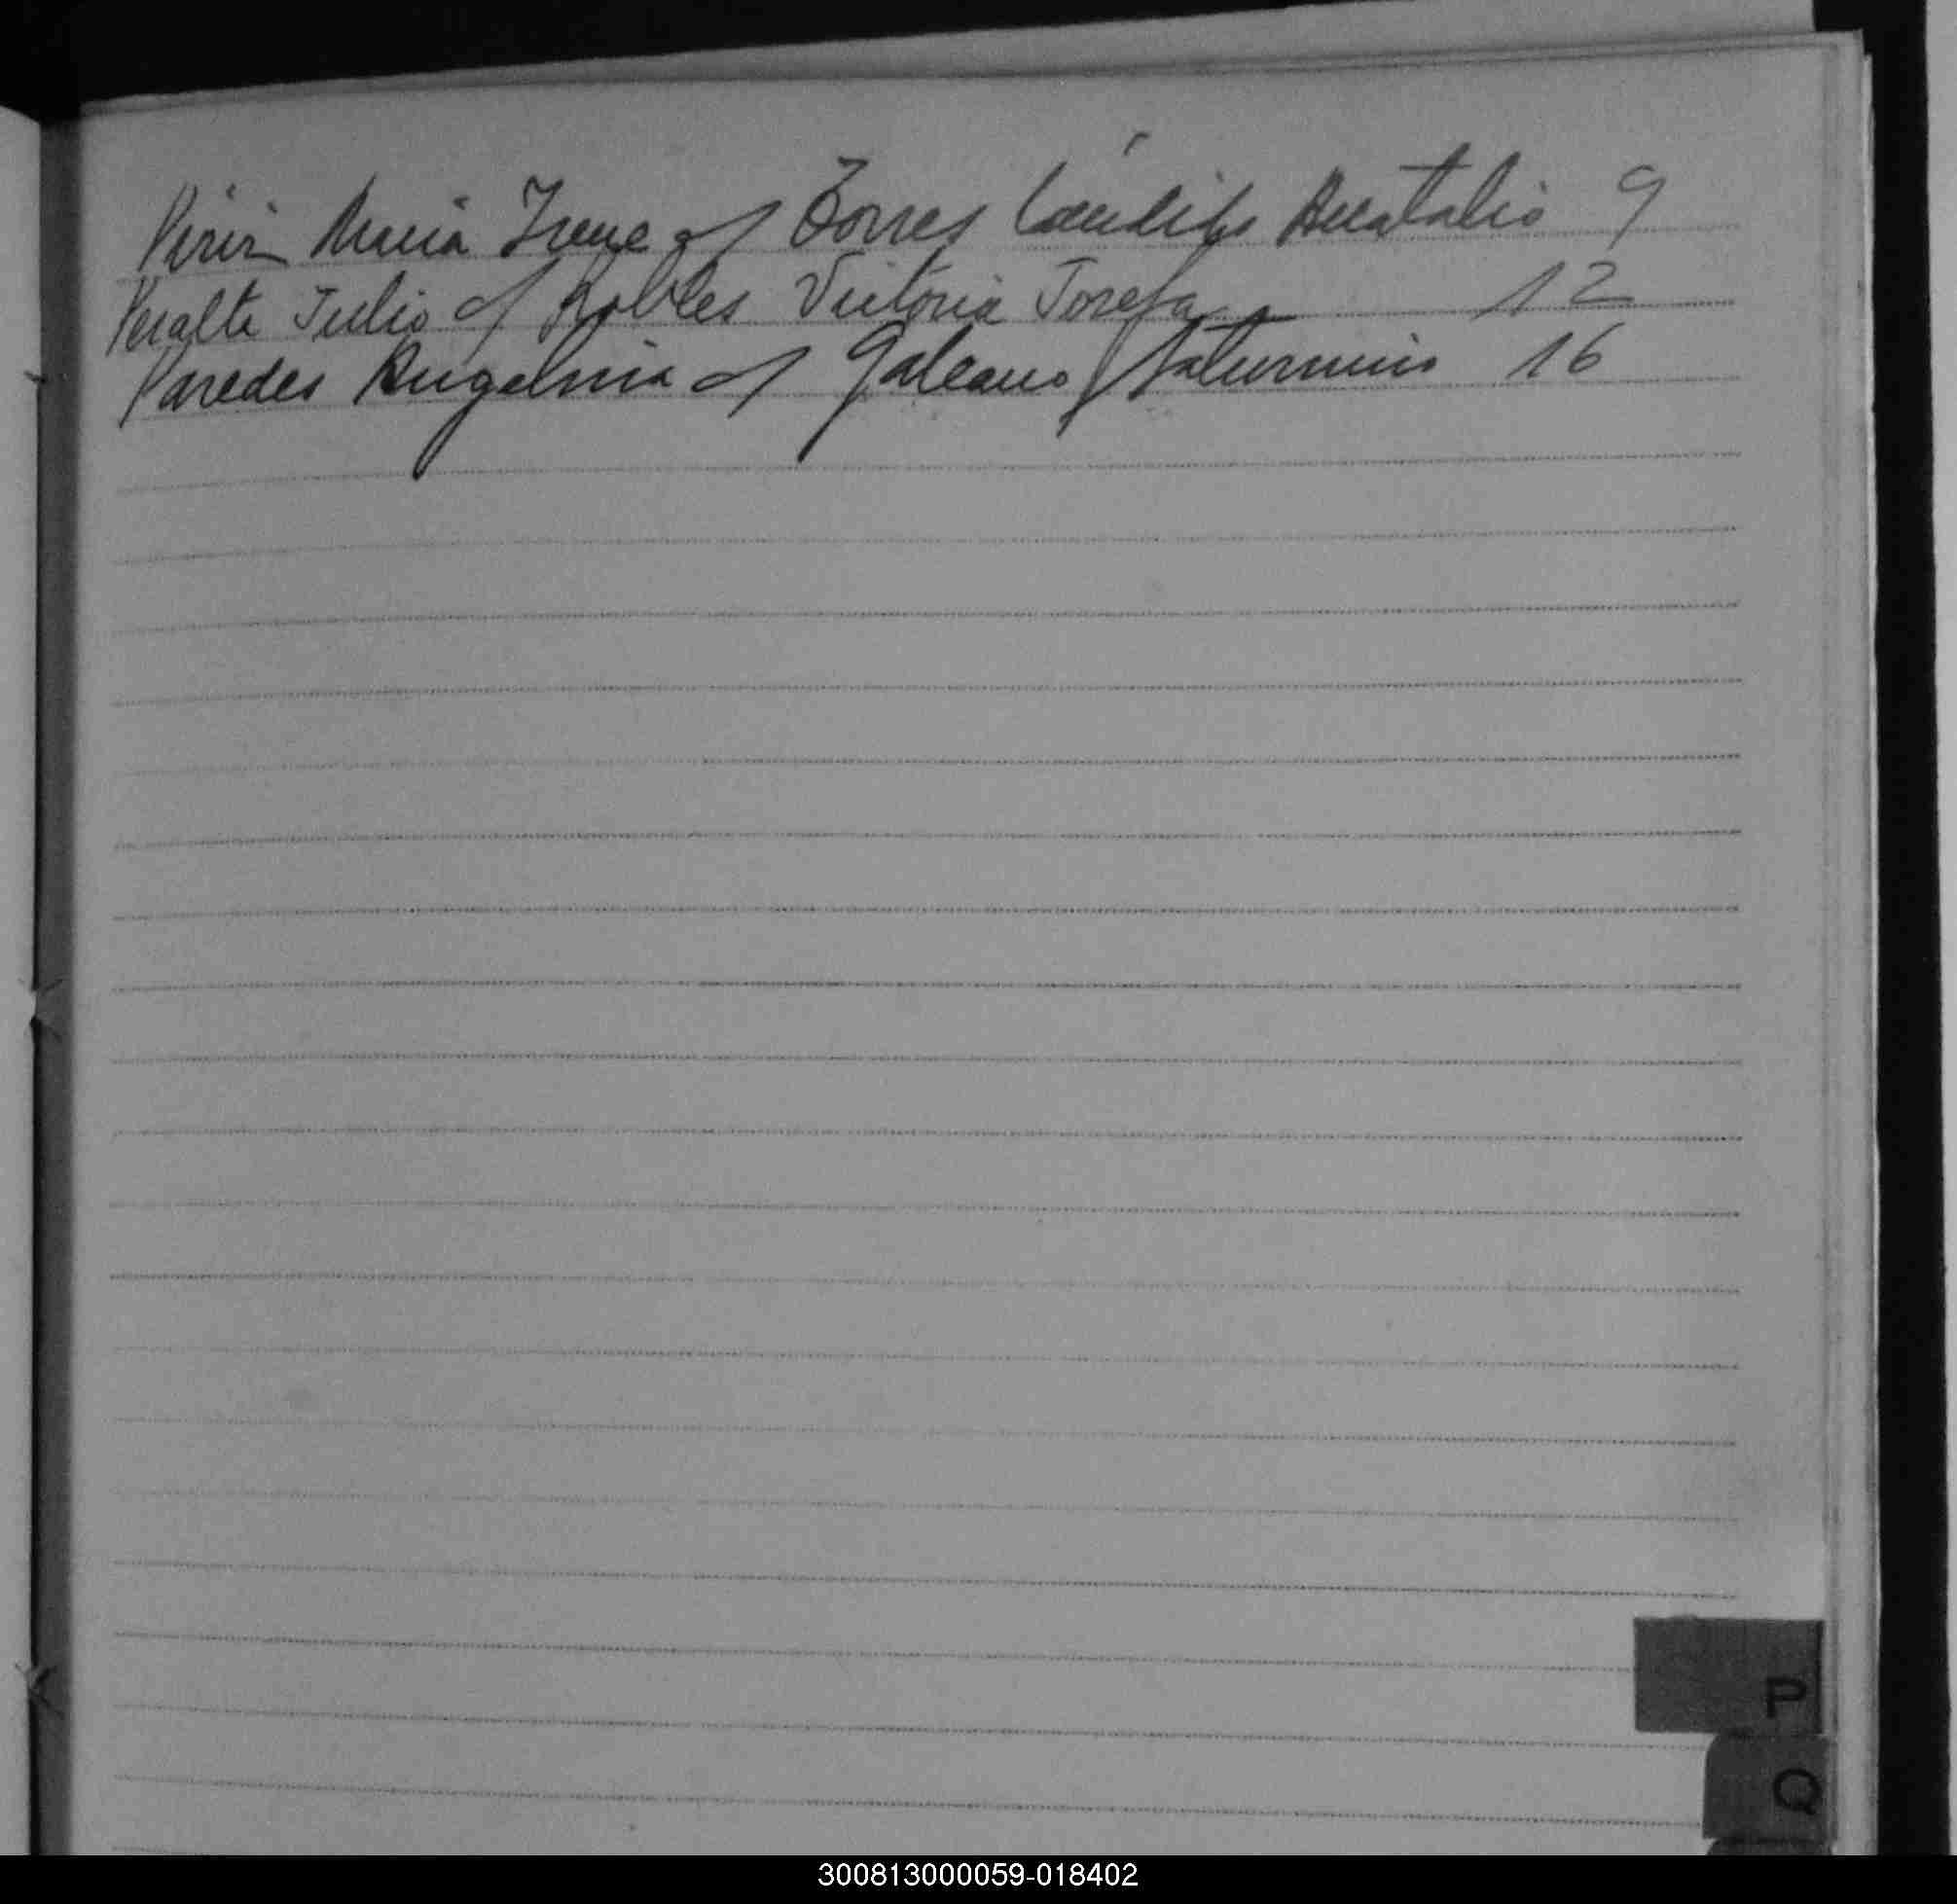 Maria Irene c/ Torres Cándido Anatalio 9
Peralta Julio c/ Robles Victoria Josefa 12
Paredes Angelina c/ Galeano Saturnino 16
P
Q
300813000059-018402